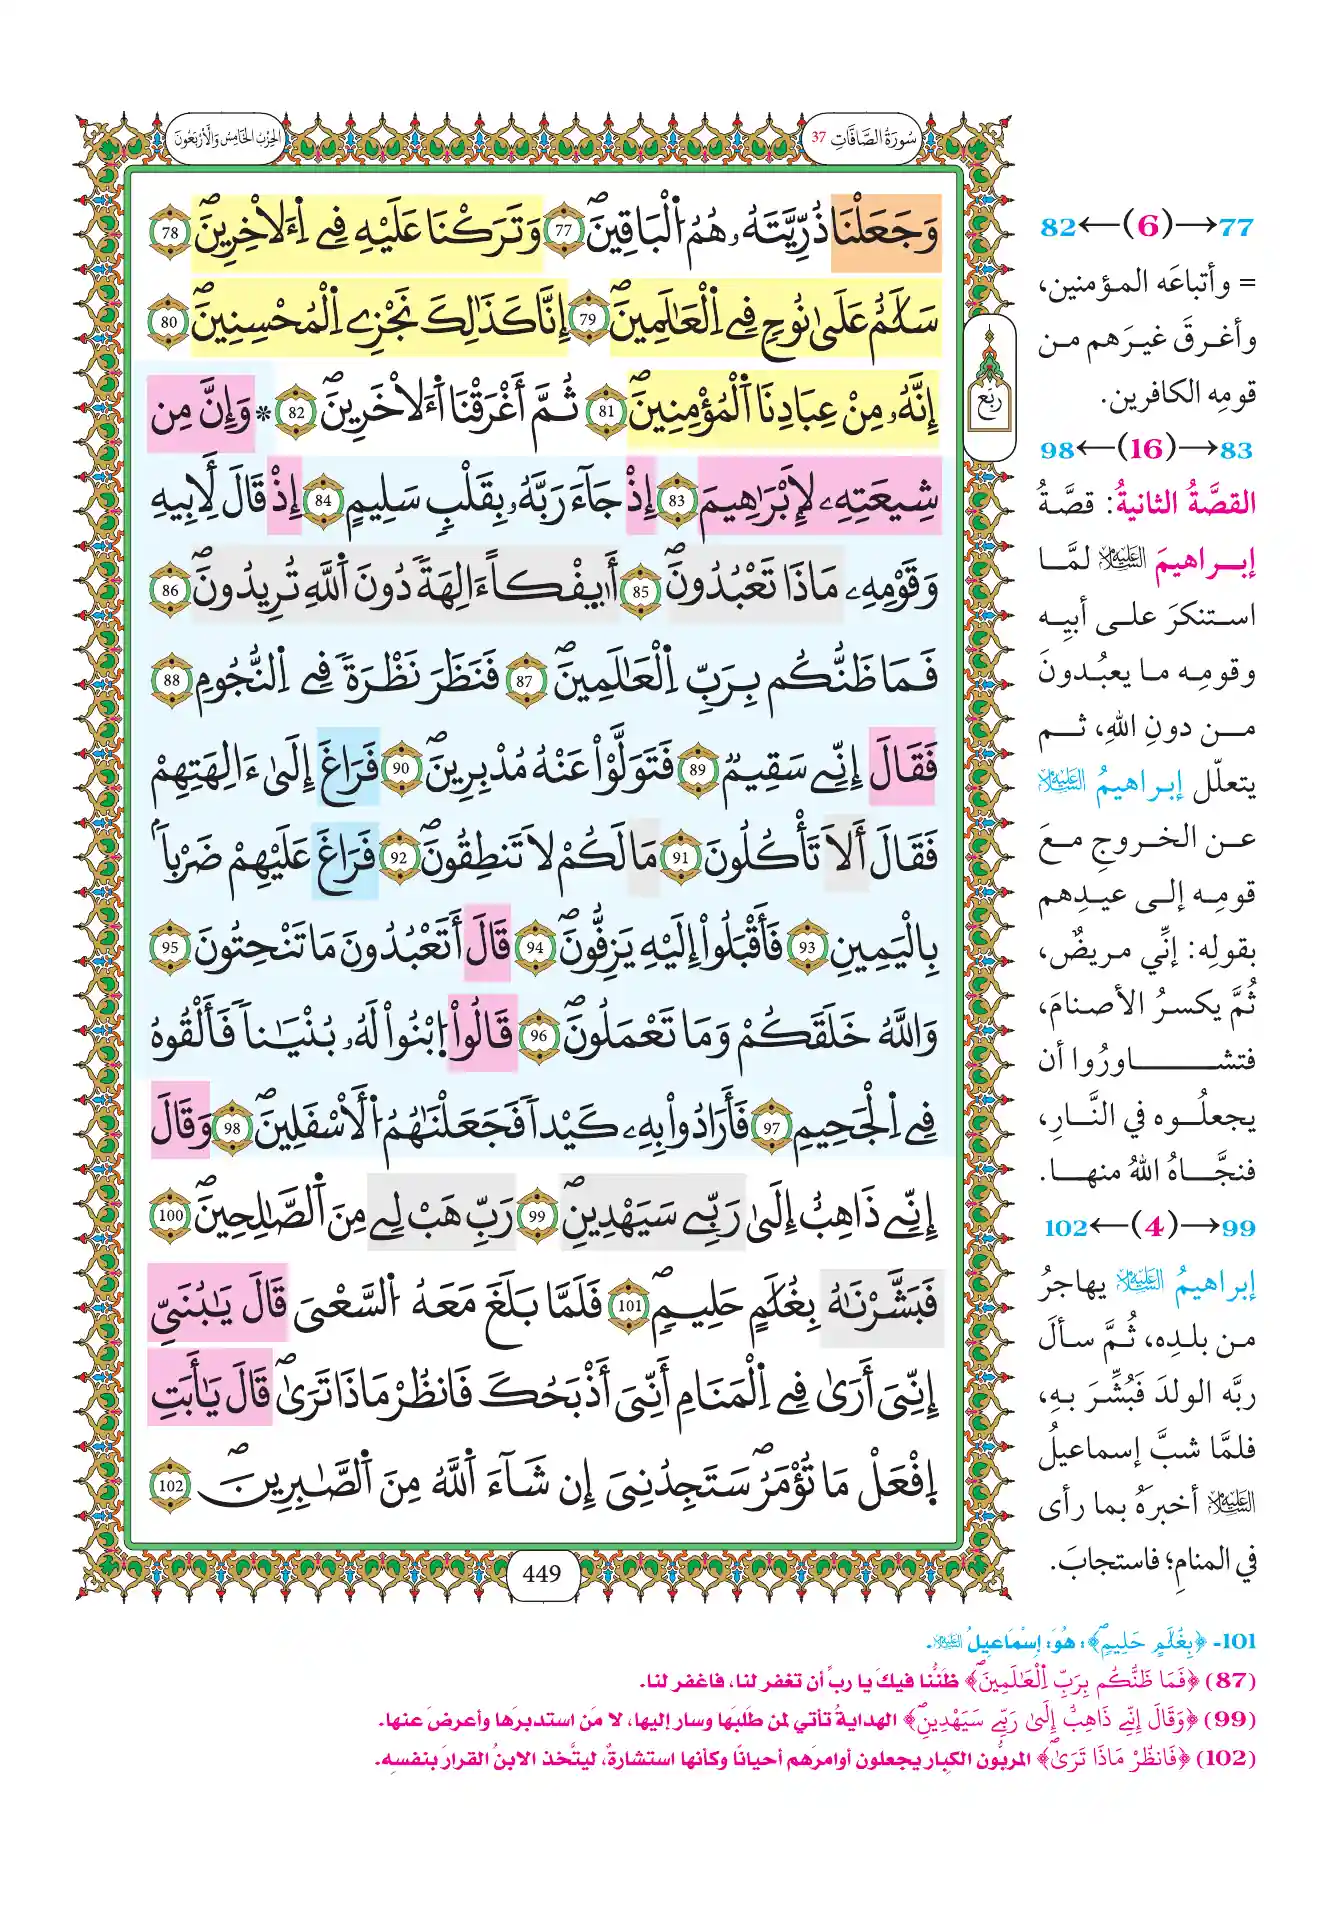 سُورَةُ الصَّافَّاتِ 37
الحِزْبُ الخَامِسُ وَالأَرْبَعُونَ
وَجَعَلْنَا ذُرِّيَّتَهُۥ هُمُ اُ۬لْبَاقِينَۖ 77 وَتَرَكْنَا عَلَيْهِ فِے اِ۬لَاخِرِينَۖ 78
سَلَٰمٌ عَلَىٰ نُوحٖ فِے اِ۬لْعَٰلَمِينَۖ 79 إِنَّا كَذَٰلِكَ نَجْزِے اِ۬لْمُحْسِنِينَۖ 80
إِنَّهُۥ مِنْ عِبَادِنَا اَ۬لْمُؤْمِنِينَۖ 81 ثُمَّ أَغْرَقْنَا اَ۬لَاخَرِينَۖ 82 * وَإِنَّ مِن
شِيعَتِهِۦ لَإِبْرَٰهِيمَ 83 إِذْ جَآءَ رَبَّهُۥ بِقَلْبٖ سَلِيمٍ 84 إِذْ قَالَ لِأَبِيهِ
وَقَوْمِهِۦ مَاذَا تَعْبُدُونَۖ 85 أَئِفْكاً ءَالِهَةٗ دُونَ اَ۬للَّهِ تُرِيدُونَۖ 86
فَمَا ظَنُّكُم بِرَبِّ اِ۬لْعَٰلَمِينَۖ 87 فَنَظَرَ نَظْرَةٗ فِے اِ۬لنُّجُومِ 88
فَقَالَ إِنِّے سَقِيمٞ 89 فَتَوَلَّوْاْ عَنْهُ مُدْبِرِينَۖ 90 فَرَاغَ إِلَىٰٓ ءَالِهَتِهِمْ
فَقَالَ أَلَا تَأْكُلُونَ 91 مَا لَكُمْ لَا تَنطِقُونَۖ 92 فَرَاغَ عَلَيْهِمْ ضَرْباَۢ
بِالْيَمِينِ 93 فَأَقْبَلُواْ إِلَيْهِ يَزِفُّونَۖ 94 قَالَ أَتَعْبُدُونَ مَا تَنْحِتُونَ 95
وَاللَّهُ خَلَقَكُمْ وَمَا تَعْمَلُونَۖ 96 قَالُواْ اُ۪بْنُواْ لَهُۥ بُنْيَٰناٗ فَأَلْقُوهُ
فِے اِ۬لْجَحِيمِ 97 فَأَرَادُواْ بِهِۦ كَيْداٗ فَجَعَلْنَٰهُمُ اُ۬لَأَسْفَلِينَۖ 98 وَقَالَ
إِنِّے ذَاهِبٌ إِلَىٰ رَبِّے سَيَهْدِينِۖ 99 رَبِّ هَبْ لِے مِنَ اَ۬لصَّٰلِحِينَۖ 100
فَبَشَّرْنَٰهُ بِغُلَٰمٍ حَلِيمٖۖ 101 فَلَمَّا بَلَغَ مَعَهُ اُ۬لسَّعْىَ قَالَ يَٰبُنَىِّ
إِنِّىَ أَرَىٰ فِے اِ۬لْمَنَامِ أَنِّىَ أَذْبَحُكَ فَانظُرْ مَاذَا تَرَىٰۖ قَالَ يَٰأَبَتِ
اِ۪فْعَلْ مَا تُؤْمَرُۖ سَتَجِدُنِىَ إِن شَآءَ اَ۬للَّهُ مِنَ اَ۬لصَّٰبِرِينَۖ 102
ربع
449
77→(6)←82
= وأتباعَه المؤمنين،
وأغرقَ غيرَهم من
قومِه الكافرين.
83→(16)←98
القصَّةُ الثانيةُ: قصَّةُ
إبراهيمَ عليه السلام لمَّا
استنكرَ على أبيِه
وقومِه ما يعبُدونَ
من دونِ اللهِ، ثم
يتعلّل إبراهيمُ عليه السلام
عن الخروجِ معَ
قومِه إلى عيدِهم
بقولِه: إنِّي مريضٌ،
ثُمَّ يكسرُ الأصنامَ،
فتشاورُوا أن
يجعلُوه في النَّارِ،
فنجَّاهُ اللهُ منها.
99→(4)←102
إبراهيمُ عليه السلام يهاجرُ
من بلدِه، ثُمَّ سألَ
ربَّه الولدَ فَبُشِّرَ بهِ،
فلمَّا شبَّ إسماعيلُ
عليه السلام أخبرَهُ بما رأى
في المنامِ؛ فاستجابَ.
101- ﴿بِغُلَٰمٍ حَلِيمٖۖ﴾: هُوَ: إِسْمَاعِيلُ عليه السلام.
(87) ﴿فَمَا ظَنُّكُم بِرَبِّ اِ۬لْعَٰلَمِينَۖ﴾ ظَنُّنا فيكَ يا ربِّ أن تغفر لنا، فاغفر لنا.
(99) ﴿وَقَالَ إِنِّے ذَاهِبٌ إِلَىٰ رَبِّے سَيَهْدِينِۖ﴾ الهدايةُ تأتي لمن طلبَها وسار إليها، لا مَن استدبرَها وأعرضَ عنها.
(102) ﴿فَانظُرْ مَاذَا تَرَىٰۖ﴾ المربُّون الكبار يجعلون أوامرَهم أحيانًا وكأنها استشارةٌ، ليتَّخذ الابنُ القرارَ بنفسِه.